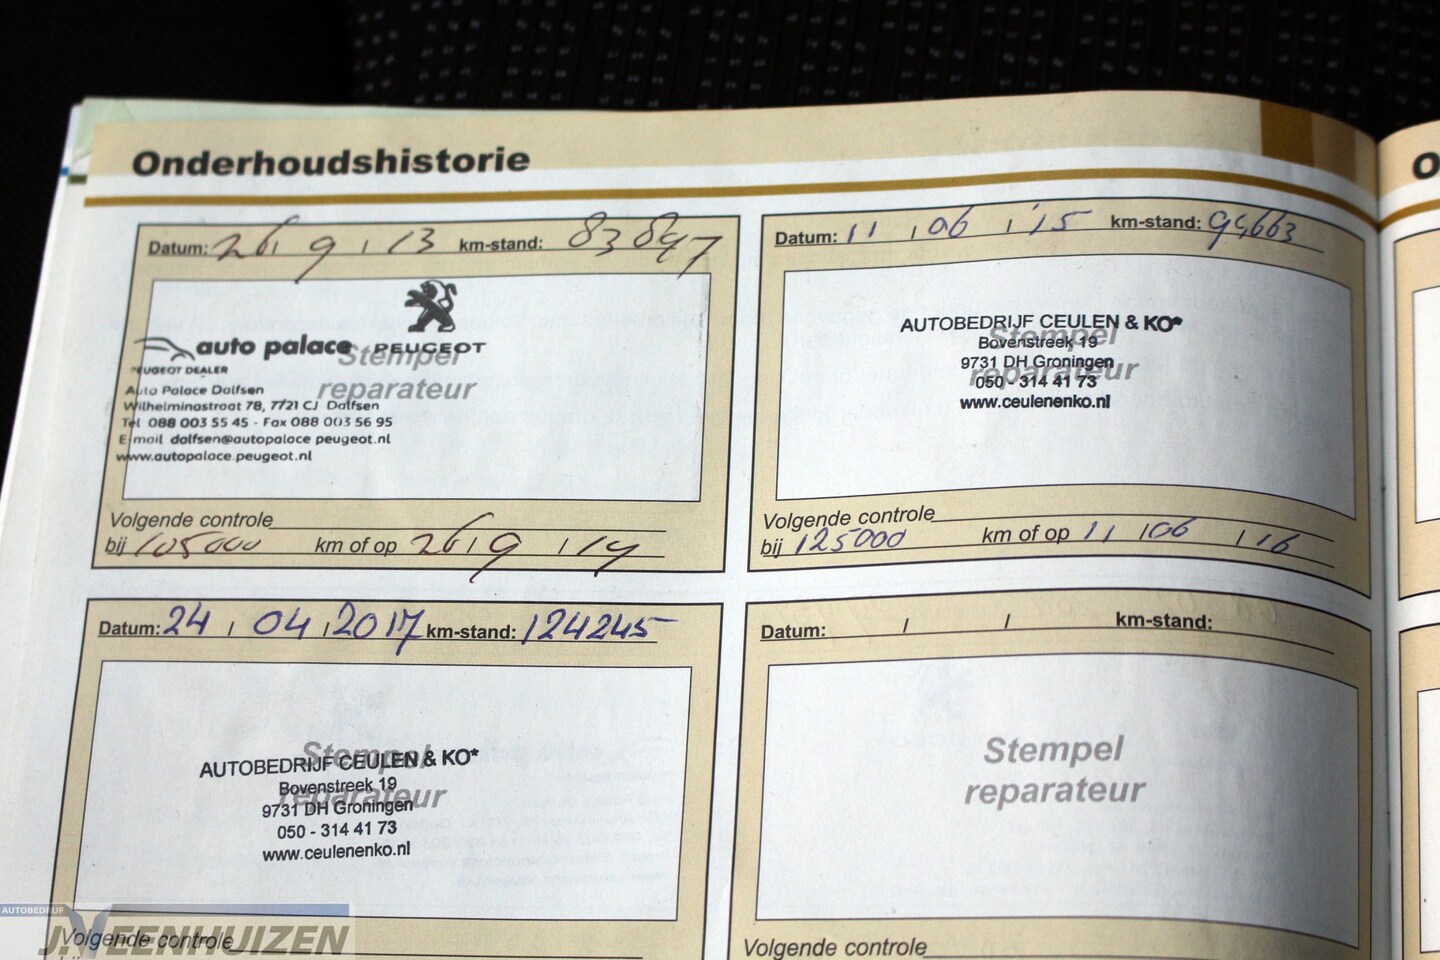 Onderhoudshistorie
O
Datum: 26 / 9 / 13 km-stand: 83897
auto palace PEUGEOT
PEUGEOT DEALER
Stempel
reparateur
Auto Palace Dalfsen
Wilhelminastraat 78, 7721 CJ Dalfsen
Tel 088 003 55 45 - Fax 088 003 56 95
E-mail dalfsen@autopalace peugeot.nl
www.autopalace.peugeot.nl
Volgende controle
bij 105000 km of op 26 / 9 / 14
Datum: 11 / 06 / '15 km-stand: 94663
AUTOBEDRIJF CEULEN & KO*
Stempel
Bovenstreek 19
9731 DH Groningen
reparateur
050 - 314 41 73
www.ceulenenko.nl
Volgende controle
bij 125000 km of op 11 / 06 / 16
Datum: 24 / 04 / 2017 km-stand: 124245
Stempel
AUTOBEDRIJF CEULEN & KO*
Bovenstreek 19
reparateur
9731 DH Groningen
050 - 314 41 73
www.ceulenenko.nl
Volgende controle
Datum: / / km-stand:
Stempel
reparateur
Volgende controle
AUTOBEDRIJF
J.VEENHUIZEN